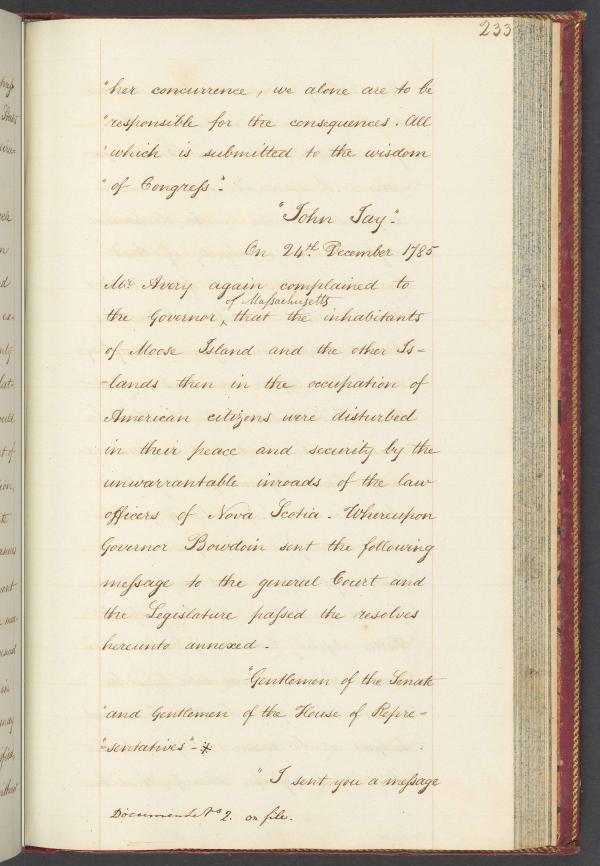 233
"her concurrence, we alone are to be
"responsible for the consequences. All
"which is submitted to the wisdom
"of Congreſs".
"John Jay."
On 24th December 1785
Mr. Avery again complained to
of Maſsachusetts
the Governor ‸ that the inhabitants
of Moose Island and the other Is-
-lands then in the occupation of
American citizens were disturbed
in their peace and security by the
unwarrantable inroads of the law
officers of Nova Scotia. Whereupon
Governor Bowdoin sent the following
meſsage to the general Court and
the Legislature paſsed the resolves
hereunto annexed.
"Gentlemen of the Senate
"and Gentlemen of the House of Repre-
"-sentatives"-*
"I sent you a meſsage
Documents No 2. on file.